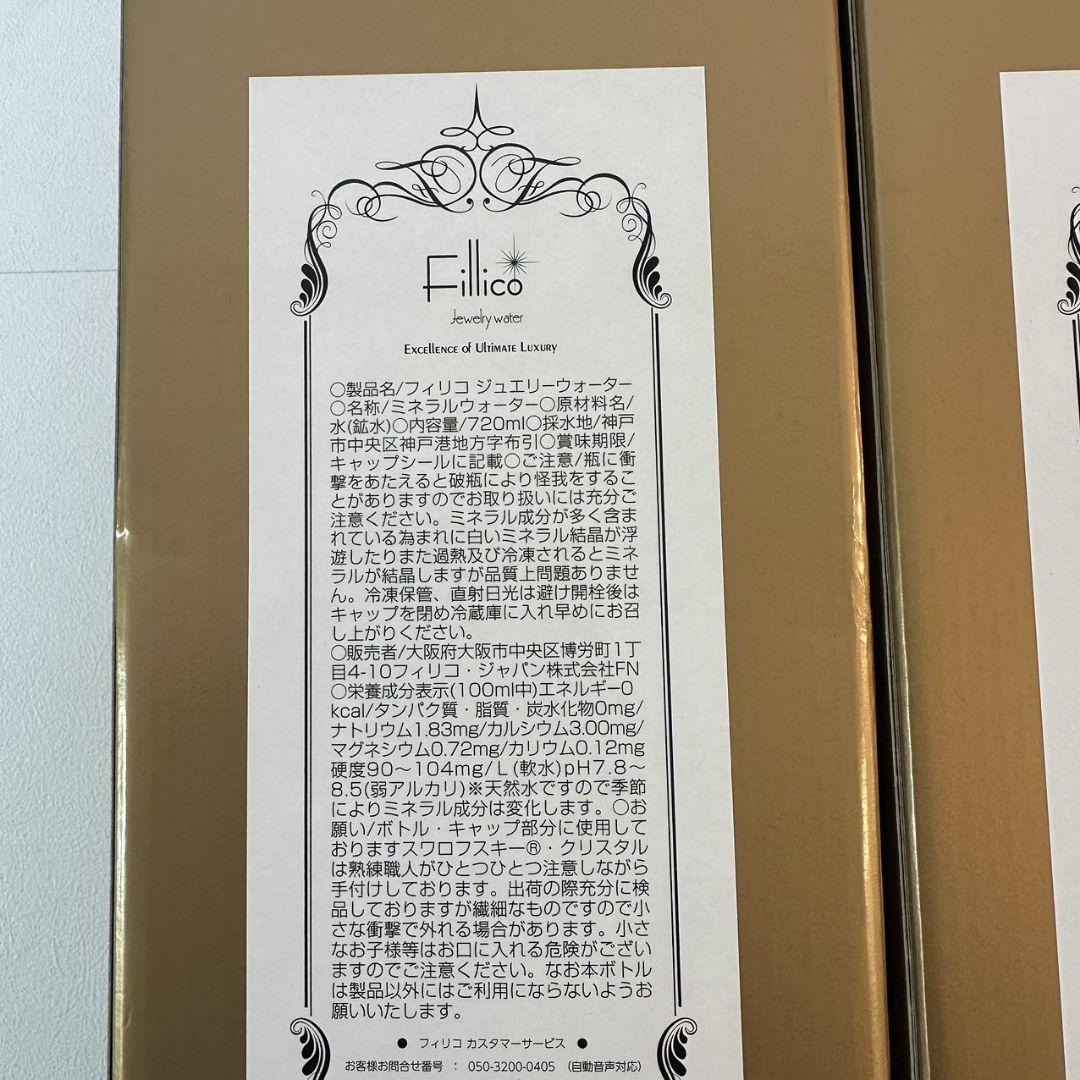 Fillico
Jewelry water
Excellence of Ultimate Luxury
○製品名/フィリコ ジュエリーウォーター
○名称/ミネラルウォーター○原材料名/
水(鉱水)○内容量/720ml○採水地/神戸
市中央区神戸港地方字布引○賞味期限/
キャップシールに記載○ご注意/瓶に衝
撃をあたえると破瓶により怪我をするこ
とがありますのでお取り扱いには充分ご
注意ください。ミネラル成分が多く含ま
れている為まれに白いミネラル結晶が浮
遊したりまた過熱及び冷凍されるとミネ
ラルが結晶しますが品質上問題ありませ
ん。冷凍保管、直射日光は避け開栓後は
キャップを閉め冷蔵庫に入れ早めにお召
し上がりください。
○販売者/大阪府大阪市中央区博労町1丁
目4-10フィリコ・ジャパン株式会社FN
○栄養成分表示(100ml中)エネルギー0
kcal/タンパク質・脂質・炭水化物0mg/
ナトリウム1.83mg/カルシウム3.00mg/
マグネシウム0.72mg/カリウム0.12mg
硬度90～104mg/L(軟水)pH7.8～
8.5(弱アルカリ)※天然水ですので季節
によりミネラル成分は変化します。○お
願い/ボトル・キャップ部分に使用して
おりますスワロフスキー®・クリスタル
は熟練職人がひとつひとつ注意しながら
手付けしております。出荷の際充分に検
品しておりますが繊細なものですので小
さな衝撃で外れる場合があります。小さ
なお子様等はお口に入れる危険がござい
ますのでご注意ください。なお本ボトル
は製品以外にはご利用にならないようお
願いいたします。
● フィリコ カスタマーサービス ●
お客様お問合せ番号 : 050-3200-0405 (自動音声対応)